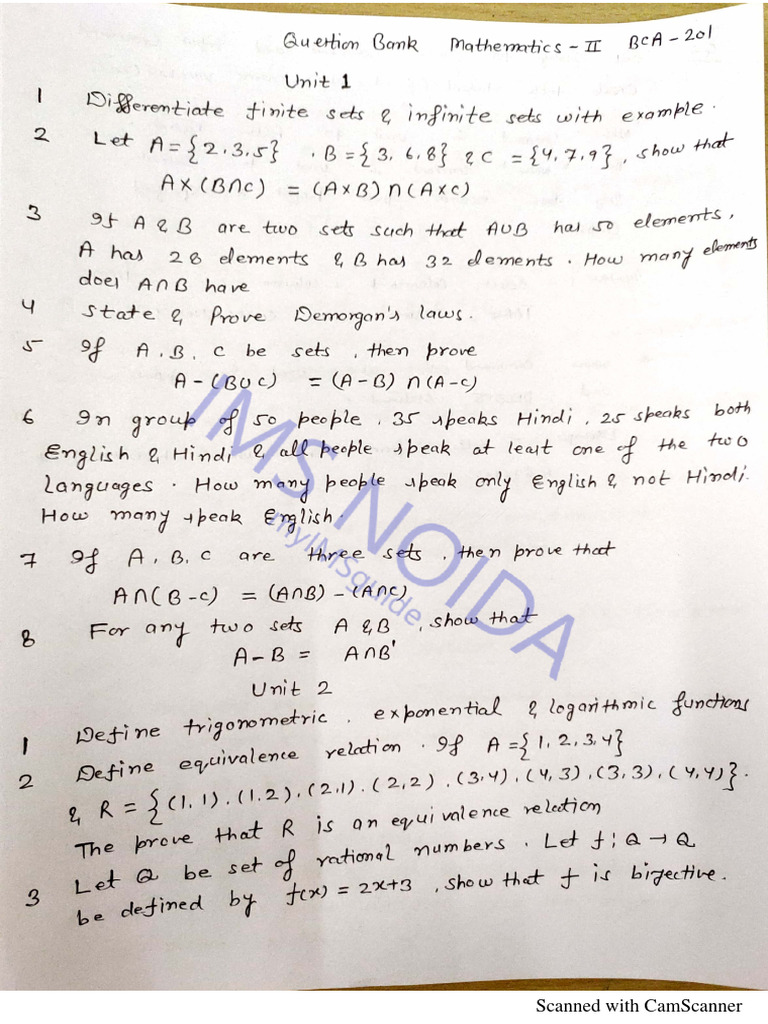 Question Bank Mathematics - II BCA - 201
Unit 1
1 Differentiate finite sets & infinite sets with example.
2 Let A = {2, 3, 5} , B = {3, 6, 8} & C = {4, 7, 9} , show that
A × (B∩C) = (A×B) ∩ (A×C)
3 If A & B are two sets such that A∪B has 50 elements,
A has 28 elements & B has 32 elements. How many elements
does A∩B have
4 State & Prove Demorgan's laws.
5 If A, B, C be sets, then prove
A - (B∪C) = (A-B) ∩ (A-C)
6 In group of 50 people, 35 speaks Hindi, 25 speaks both
English & Hindi & all people speak at least one of the two
languages. How many people speak only English & not Hindi.
How many speak English.
7 If A, B, C are three sets, then prove that
A∩(B-C) = (A∩B) - (A∩C)
8 For any two sets A & B, show that
A-B = A∩B'
Unit 2
1 Define trigonometric, exponential & logarithmic functions
2 Define equivalence relation. If A = {1, 2, 3, 4}
& R = {(1, 1), (1, 2), (2, 1), (2, 2), (3, 4), (4, 3), (3, 3), (4, 4)}.
The prove that R is an equivalence relation
3 Let Q be set of rational numbers. Let f: Q → Q
be defined by f(x) = 2x+3, show that f is bijective.
IMS NOIDA
myIMSguide
Scanned with CamScanner